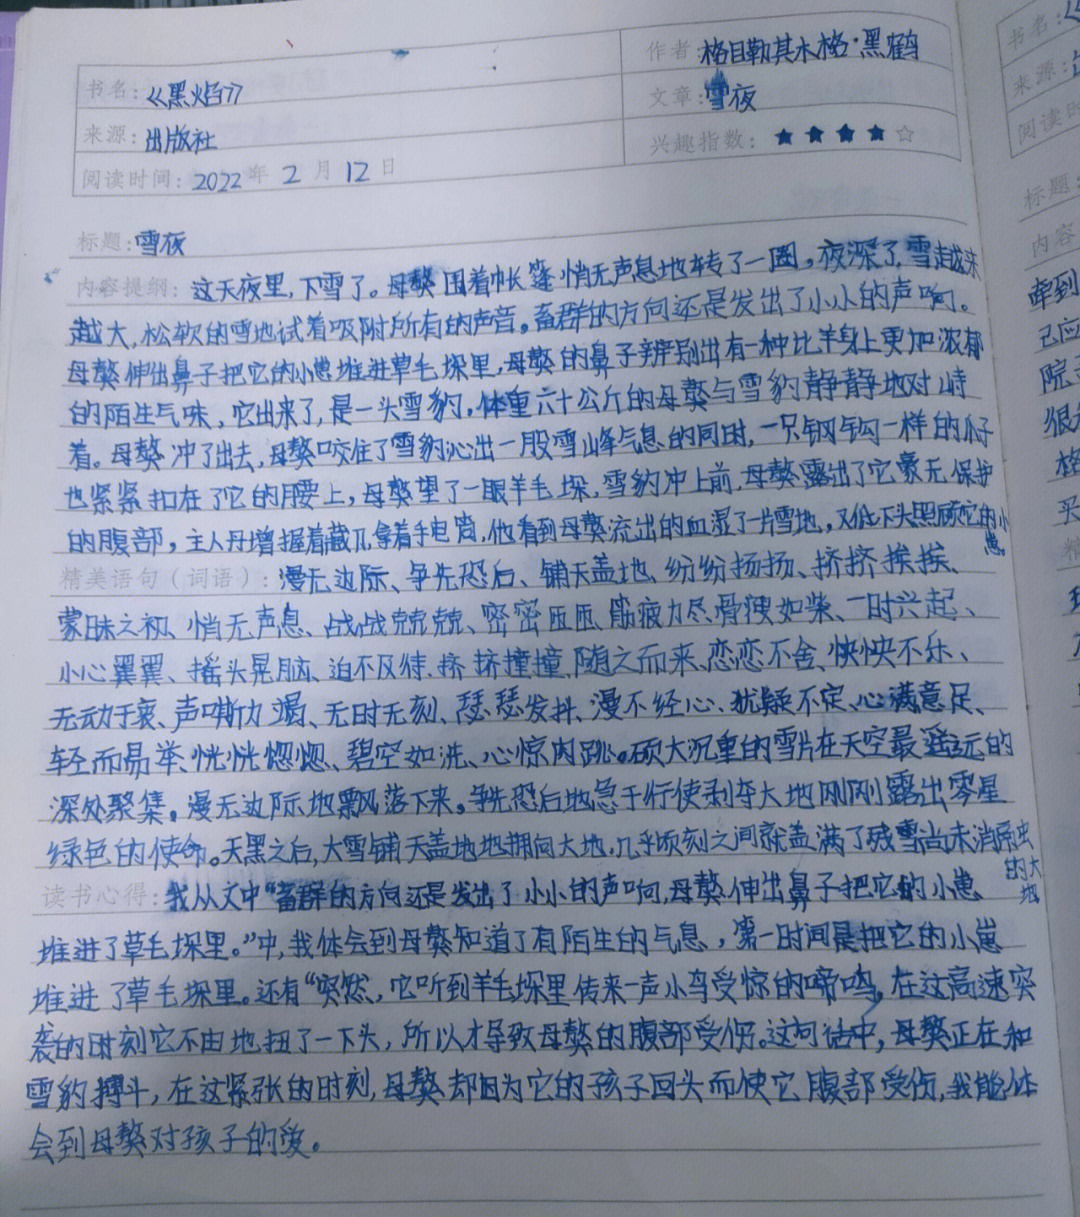 书名：《黑焰》
作者：格日勒其木格·黑鹤
文章：雪夜
来源：出版社
兴趣指数：★★★★☆
阅读时间：2022年2月12日
标题：雪夜
内容提纲：这天夜里，下雪了。母獒围着帐篷悄无声息地转了一圈，夜深了，雪越来
越大，松软的雪地试着吸附所有的声音。畜群的方向还是发出了小小的声响。
母獒伸出鼻子把它的小崽堆进草毛垛里，母獒的鼻子辨别出有一种比羊身上更加浓郁
的陌生气味，它出来了，是一头雪豹，体重六十公斤的母獒与雪豹静静地对峙
着。母獒冲了出去，母獒咬住了雪豹沁出一股雪峰气息的同时，一只钢钩一样的爪子
也紧紧扣在了它的腰上，母獒望了一眼羊毛垛，雪豹冲上前，母獒露出了它豪无保护
的腹部，主人丹增握着藏刀，拿着手电筒，他看到母獒流出的血湿了一片雪地，又低下头照顾它的小崽
精美语句（词语）：漫无边际、争先恐后、铺天盖地、纷纷扬扬、挤挤挨挨、
蒙昧之初、悄无声息、战战兢兢、密密匝匝、筋疲力尽、骨瘦如柴、一时兴起、
小心翼翼、摇头晃脑、迫不及待、挤挤撞撞、随之而来、恋恋不舍、怏怏不乐、
无动于衷、声嘶力竭、无时无刻、瑟瑟发抖、漫不经心、犹疑不定、心满意足、
轻而易举、恍恍惚惚、碧空如洗、心惊肉跳。硕大沉重的雪片在天空最遥远的
深处聚集。漫无边际地飘落下来。争先恐后地急于行使剥夺大地刚刚露出零星
绿色的使命。天黑之后，大雪铺天盖地地拥向大地，几乎顷刻之间就盖满了残雪尚未消融的大地
读书心得：我从文中“畜群的方向还是发出了小小的声响，母獒伸出鼻子把它的小崽
堆进了草毛垛里。”中，我体会到母獒知道了有陌生的气息，第一时间是把它的小崽
堆进了草毛垛里。还有“突然，它听到羊毛垛里传来一声小鸟受惊的啼鸣，在这高速突
袭的时刻它不由地扭了一下头，所以才导致母獒的腹部受伤。这句话中，母獒正在和
雪豹搏斗，在这紧张的时刻，母獒却因为它的孩子回头而使它腹部受伤，我能体
会到母獒对孩子的爱。
书名：
来源：
阅读时
标题：
内容
牵到
己应
很
格
买
精